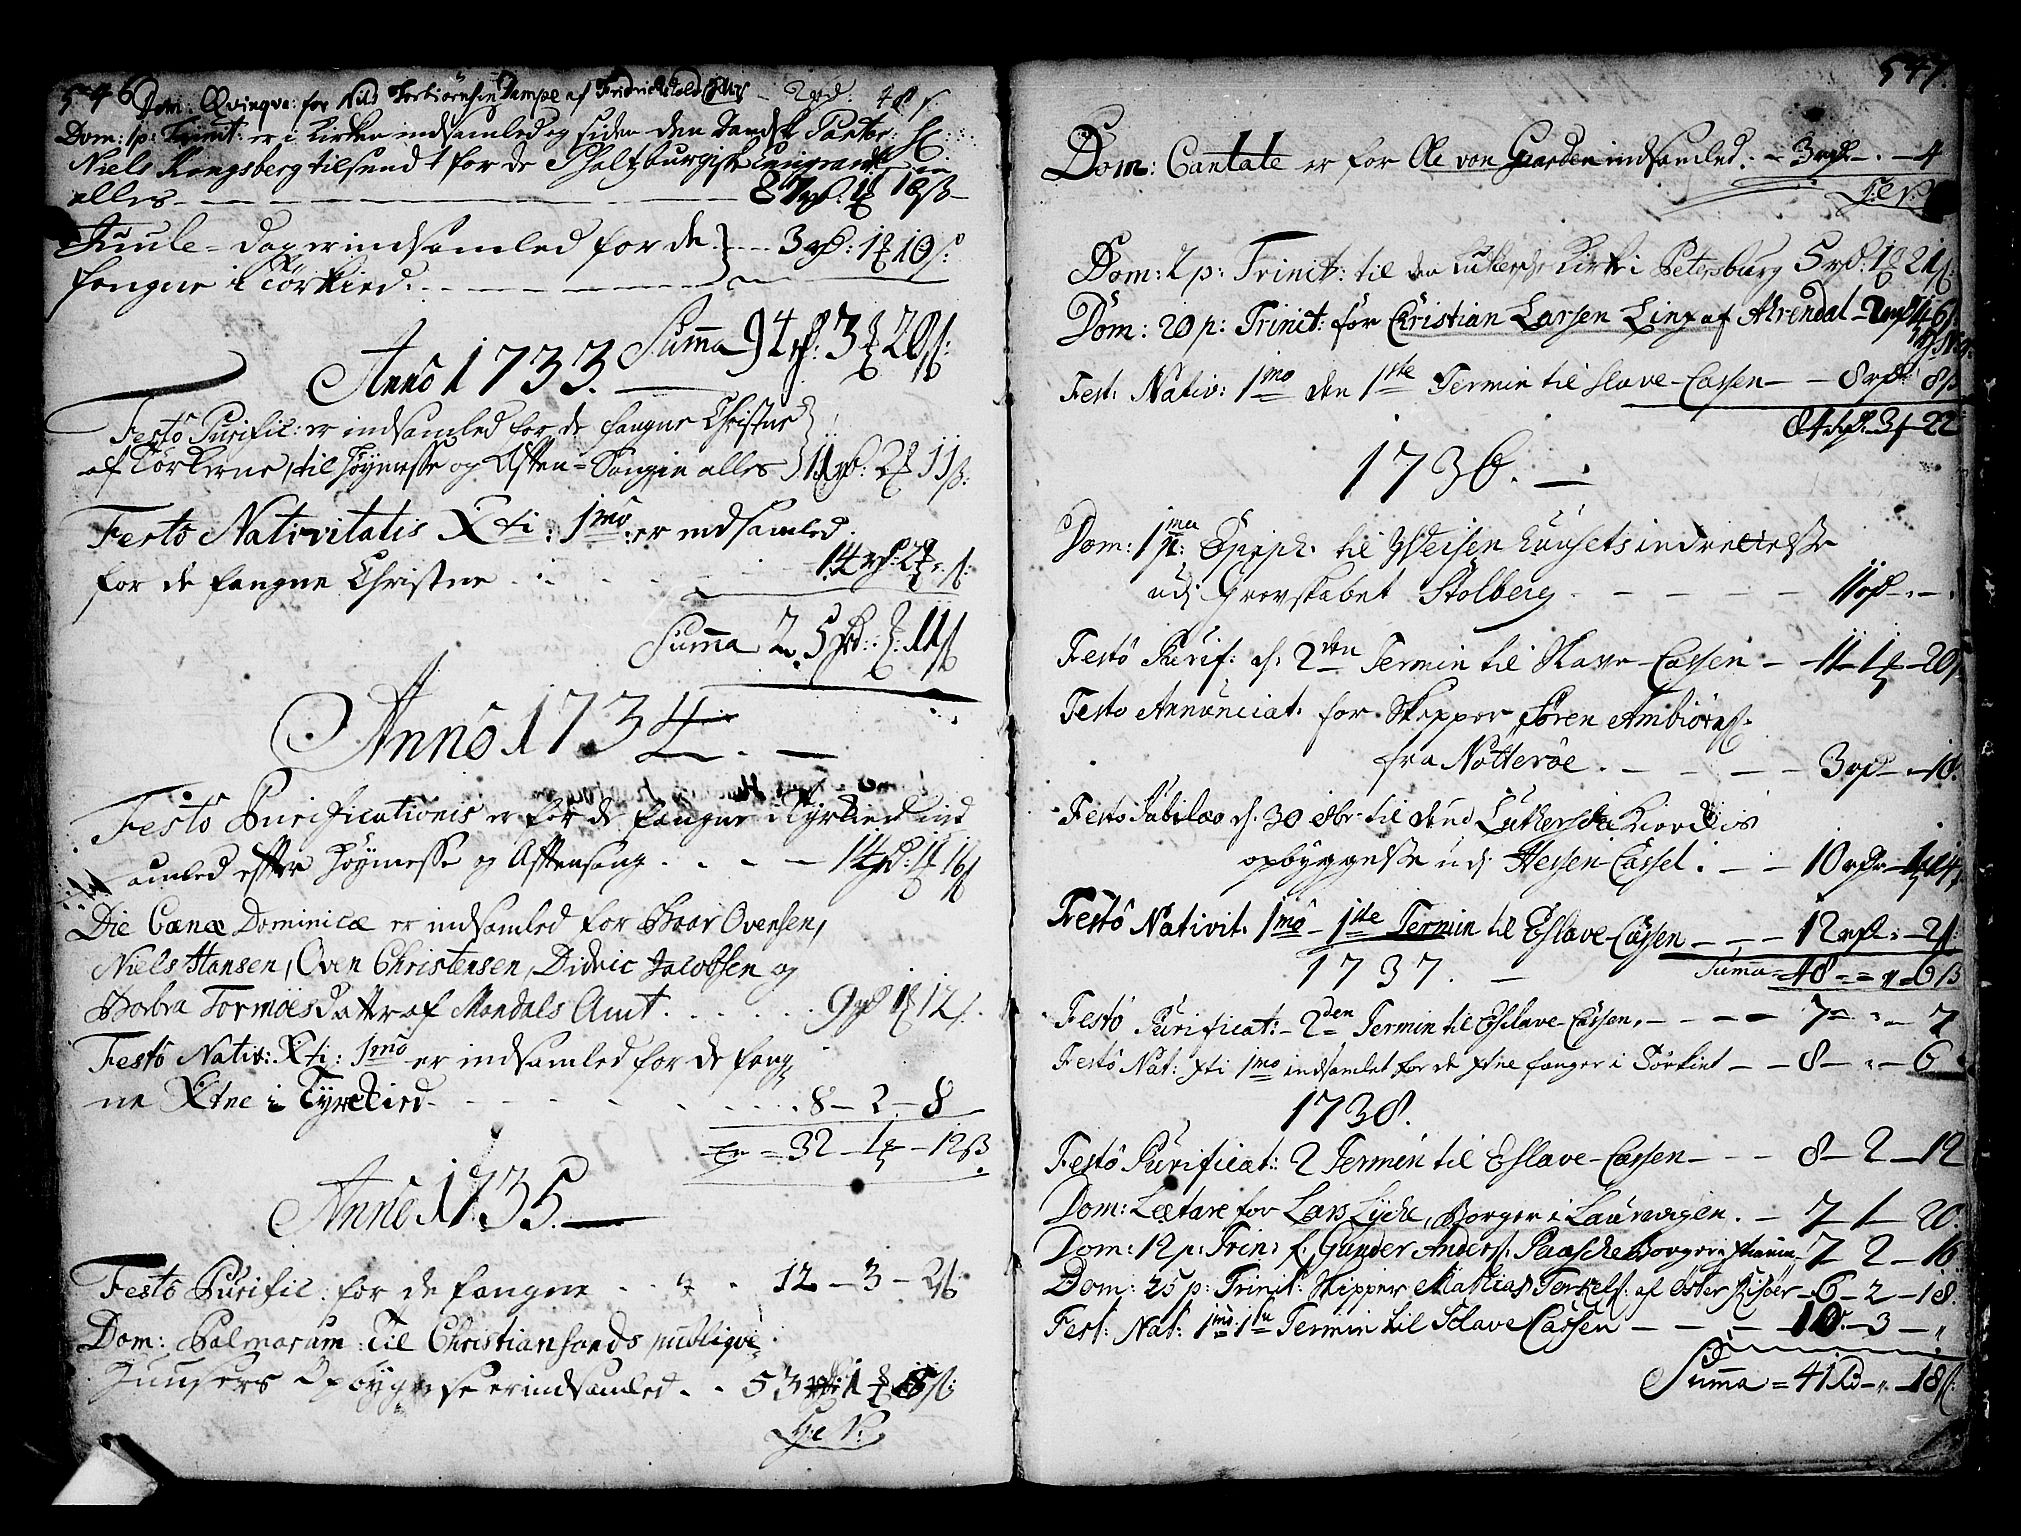 546
Dom: Qvinqva: for Nils Torkiörnsen Dampe af Fridrichshald
Dom: 1 p: Trinit: er i Kirken indsamled og siden den Dansk Pastor
Niels Kongsberg tilsendt for de Saltzburgiske Emigranter
alles
Juule-Dag er indsamled for de 3 rd: 1 10 s:
fangne i Törkied.
Summa 94 rd: 3 20 s:
Anno 1733.
Festo Purific: er indsamled for de fangne Christne
af Törkerne, til Höymesse og Aften-Sangin alles 11 rd: 2 11 s:
Festo Nativitatis Xti: 1mo er indsamled
for de fangne Christne 14 rd: 2
Summa 25 rd: 11 s
Anno 1734.
Festo Purificationis er for de fangne i Tyrkied ind
samled efter Höymesse og Aftensang. 14 rd: 1 16 s
Die Cænæ Dominicæ er indsamled for Ovensen,
Niels Hansen, Oven Christensen, Didric Jacobsen og
Tormoesdatter af Mandals Amt. 9 rd 1 12 s.
Festo Nativ: Xti: 1mo er indsamled for de fang
ne Xtne i Tyrckied 8 - 2 - 8
32 - 1 - 12 s
Anno 1735.
Festo Purific: for de fangne 12 - 3 - 2 s
Dom: Palmarum: Til Christiansands publiqve
Huusers Opbyggelse er indsamled 53 rd 1
547.
Dom: Cantate er for Ole von Gaarden indsamled. 3 rd - 4
Dom: 2 p: Trinit: til den Lutherske Kirke i Petersburg 5 rd: 1 21 s:
Dom: 20 p: Trinit: for Christian Larsen Linz af Ahrendal
Fest: Nativ: 1mo den 1ste Termin til Slave-Cassen - 8 rd 8 s
84 rd 3 - 22
1736.
Dom: 1ma p: Epiph: til Weisen huusets indrettelse
udj Grevskabet Stolberg 11 rd
Festo Purif: d. 2den Termin til Slave-Cassen - 11 - 1 - 20 s
Festo Annunciat: for Skipper Sören Ambiörns:
fra Nötteröe. 3 rd - 10.
Festo Jubilæo d. 30 8br: til den Lutherske Kirckis
opbyggelse udj Hessen-Cassel. 10 rd 14
Festo Nativit. 1mo - 1ste Termin til Eslave-Cassen 12 rd - 2 s:
1737. Summa = 48 = 6 s
Festo Purificat: - 2den Termin til Eslave-Cassen. 7 - 7
Festo Nat: Xti 1mo indsamlet for de Xtne fanger i Törkiet - 8 - 6
1738.
Festo Purificat: 2 Termin til Eslave-Cassen - 8 - 2 - 12
Dom: Lætare for Lars Lycke, Borger i Laurwigen. - 7 - 1 - 20.
Dom: 12 p: Trin: f. Gunder Anders: Paasche Borger 7 - 2 - 16
Dom: 25 p: Trinit: Skipper Mathias Terkels: af Öster Risöer - 6 - 2 - 18
Fest: Nat: 1mo 1ste Termin til Sclave Cassen 10 - 3 -
Summa = 41 Rd - 18 s: